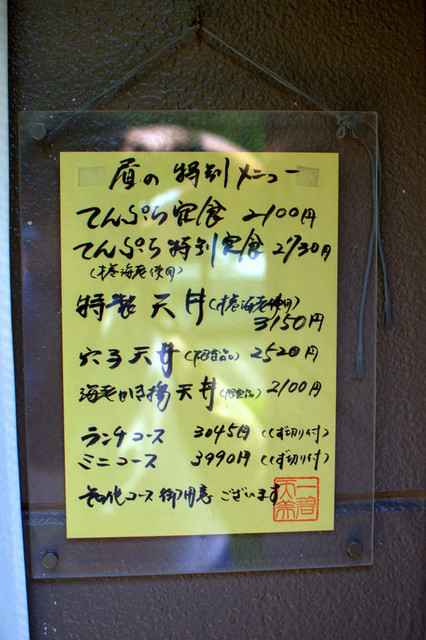 昼の特別メニュー
てんぷら定食 2100円
てんぷら特別定食 2730円
(才巻海老使用)
特製 天丼(才巻海老使用)
3150円
穴子天丼(限定品) 2520円
海老かき揚天丼(限定品) 2100円
ランチコース 3045円 (くず切り付)
ミニコース 3990円 (くず切り付)
その他コース御用意ございます